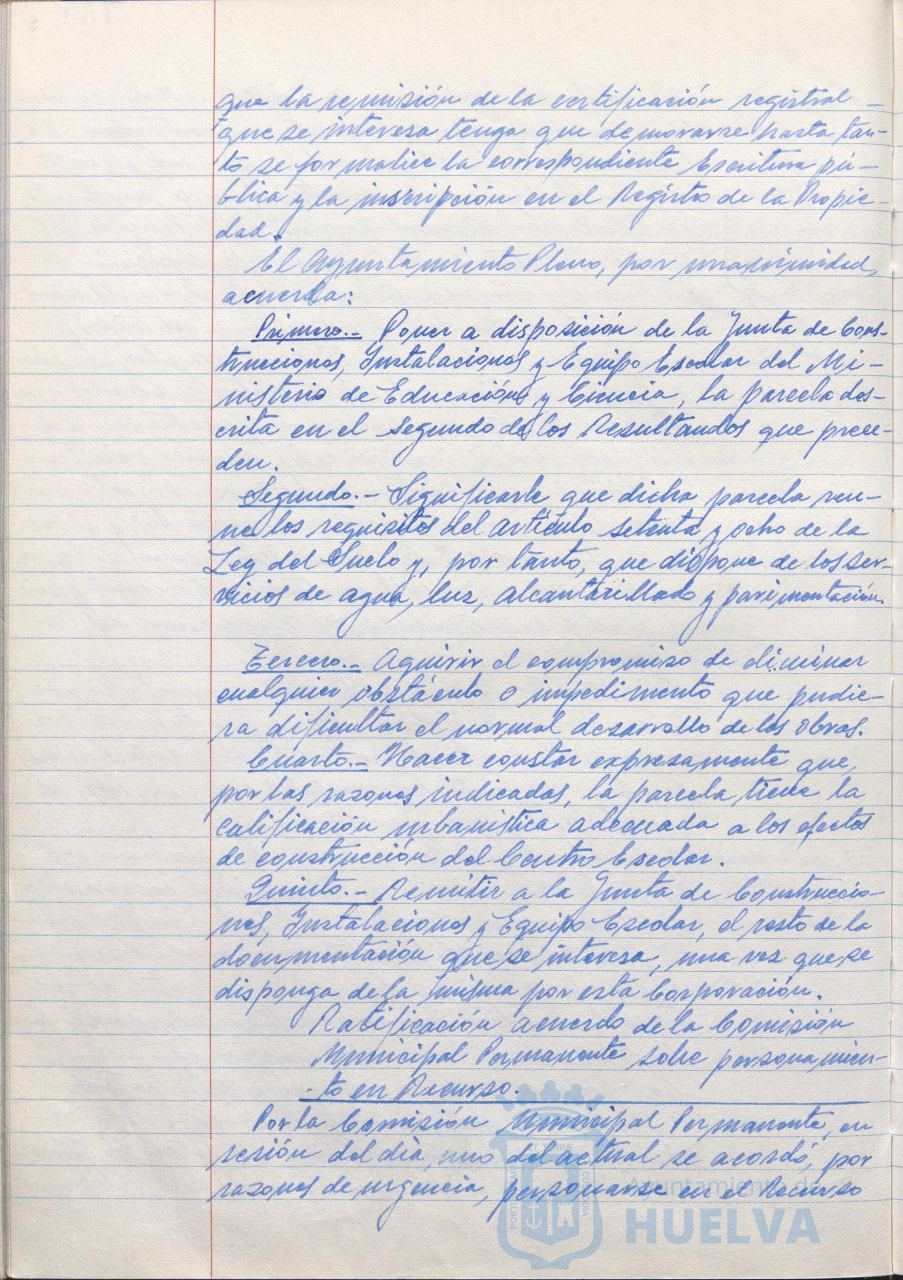 que la remisión de la certificación registral -
que se interesa tenga que demorarse hasta tan-
to se formalice la correspondiente Escritura pú-
blica y la inscripción en el Registro de la Propie-
dad.
El Ayuntamiento Pleno, por unanimidad,
acuerda:
Primero.- Poner a disposición de la Junta de Cons-
trucciones, Instalaciones y Equipo Escolar del Mi-
nisterio de Educación y Ciencia, la parcela des-
crita en el segundo de los Resultandos que prece-
den.
Segundo.- Significarle que dicha parcela reu-
ne los requisitos del artículo setenta y ocho de la
Ley del Suelo y, por tanto, que dispone de los ser-
vicios de agua, luz, alcantarillado y pavimentación.
Tercero.- Aquirir el compromiso de eliminar
cualquier obstáculo o impedimento que pudie-
ra dificultar el normal desarrollo de los obras.
Cuarto.- Hacer constar expresamente que,
por las razones indicadas, la parcela tiene la
calificación urbanística adecuada a los efectos
de construcción del Centro Escolar.
Quinto.- Remitir a la Junta de Construccio-
nes, Instalaciones y Equipo Escolar, el resto de la
documentación que se interesa, una vez que se
disponga de la misma por esta Corporación.
Ratificación acuerdo de la Comisión
Municipal Permanente sobre personamien-
to en Recurso.
Por la Comisión Municipal Permanente, en
sesión del día uno del actual se acordó, por
razones de urgencia, personarse en el Recurso
Ayuntamiento de
HUELVA